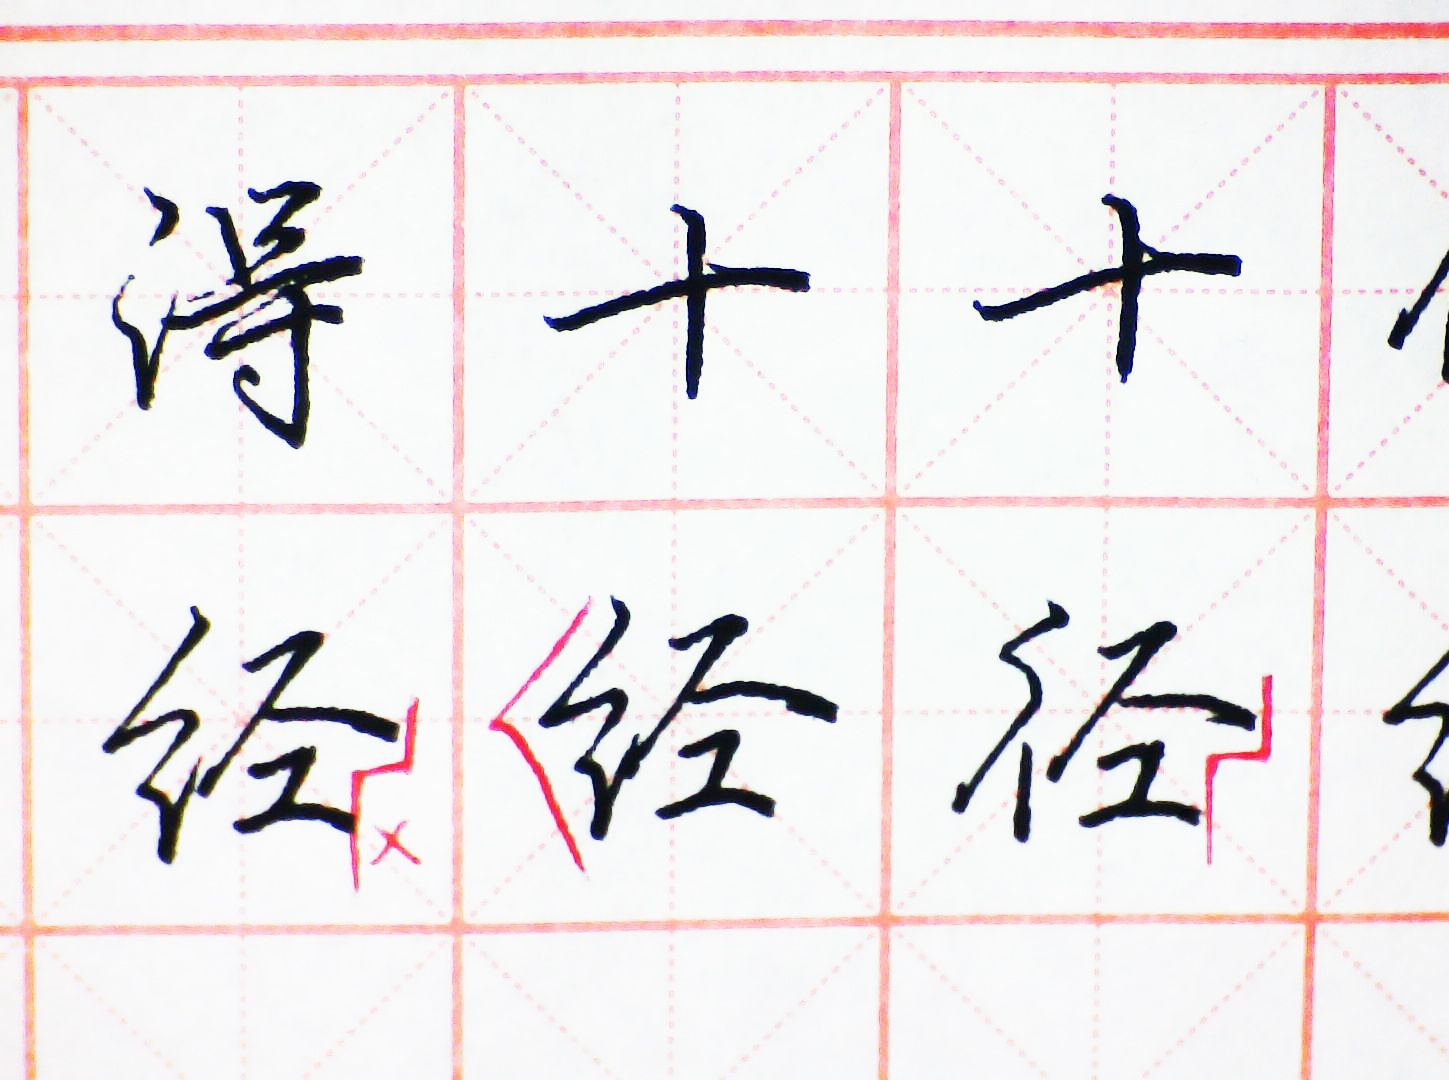 得十十
经经径